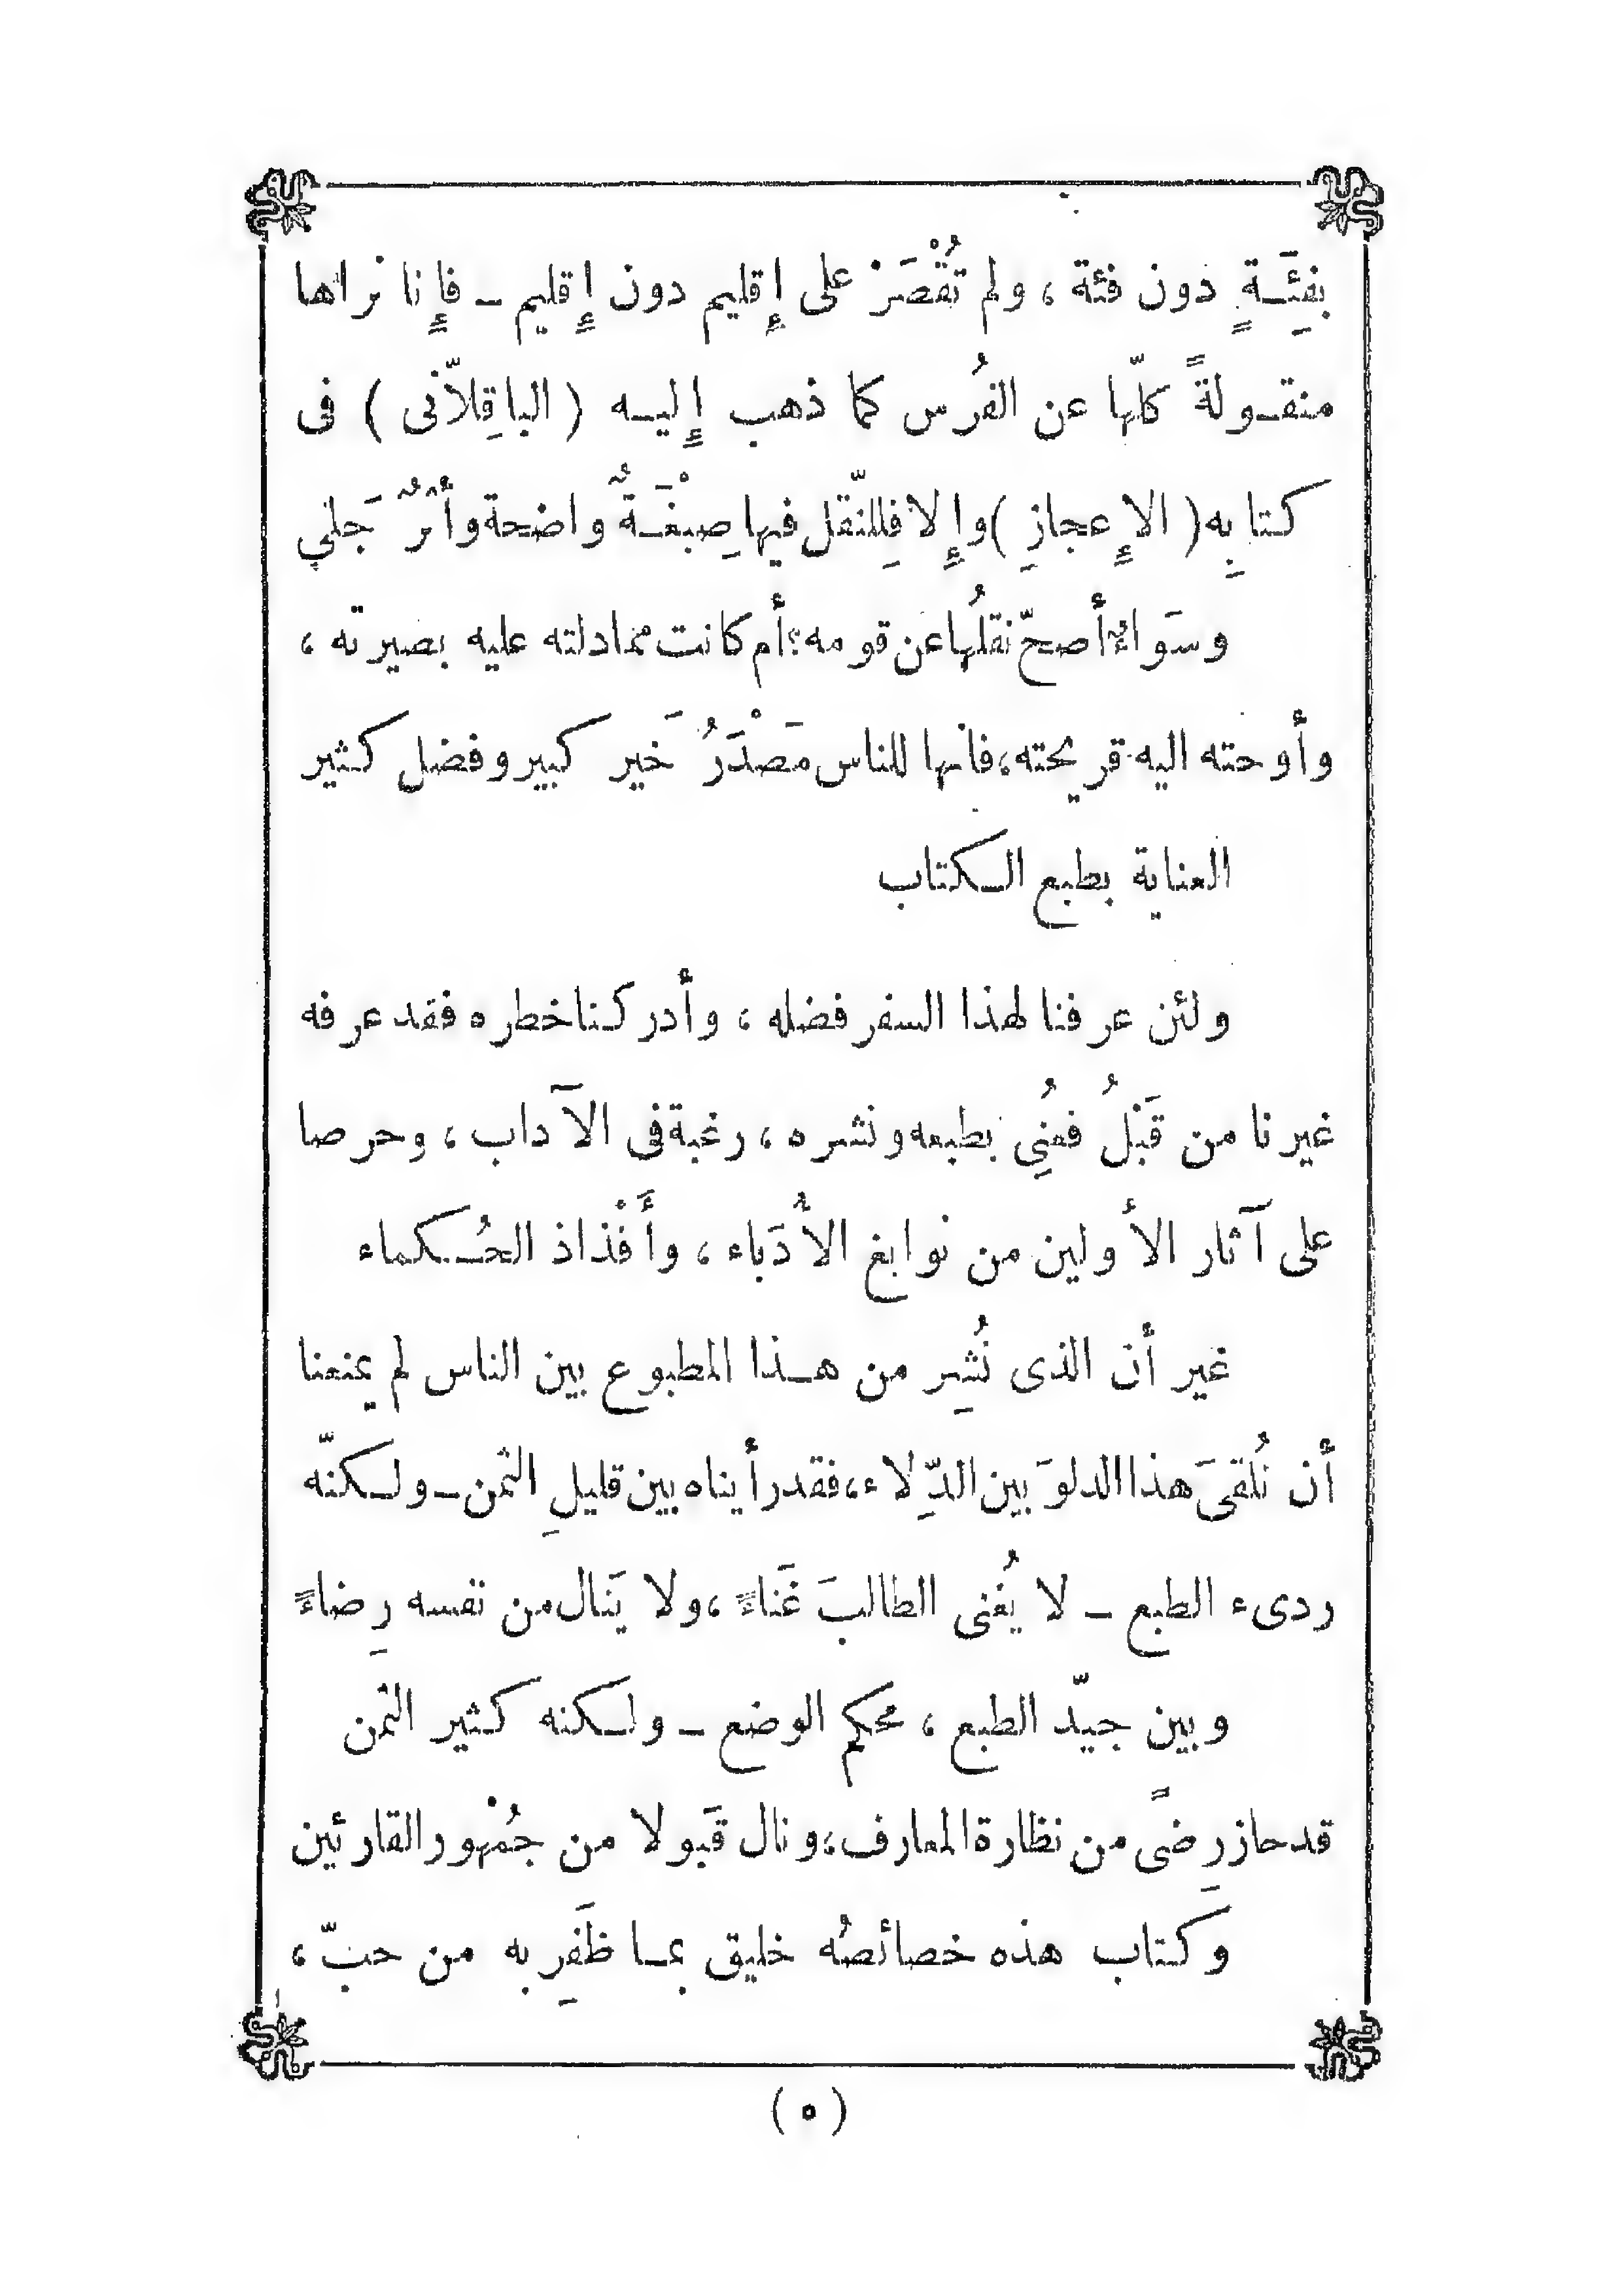 بفِئَـةٍ دون فئة ، ولم تُقْصَرْ على إِقليم دون إِقليم ـ فإِنا نراها
منقـولةً كلّها عن الفُرس كما ذهب إِليـه ( الباقِلاّنى ) فى
كتابِه ( الإِعجازِ ) وإِلا فِللنّقل فيها صِبْغَـةٌ واضحة وأثرٌ جَلىٌ
وسَواءٌ أصحّ نقلُها عن قومه؛ أم كانت مما دلته عليه بصيرته ،
وأوحته اليه قريحته، فانها للناس مَصْدَرُ خَير كبير وفضل كثير
العناية بطبع الكتاب
ولئن عرفنا لهذا السفر فضله ، وأدركنا خطره فقد عرفه
غيرنا من قَبْلُ فعُنِى بطبعه ونشره ، رغبة فى الآداب ، وحرصا
على آثار الأولين من نوابغ الأُدَباء ، وأَفْذاذ الحُـكماء
غير أن الذى نُشِر من هـذا المطبوع بين الناس لم يمنعنا
أن نُلقىَ هذا الدلوَ بين الدِّلاء، فقد رأيناه بين قليلِ الثمن ـ ولـكنّه
ردىء الطبع ـ لا يُغنى الطالبَ غَناءً ، ولا يَنال من نفسه رِضاءً
وبين جيّد الطبع ، محكم الوضع ـ ولـكنه كثير الثمن
قد حاز رِضىً من نظارة المعارف، ونال قَبولا من جُمْهور القارئين
وَكتاب هذه خصائصُه خليق بمـا ظَفِر به من حبّ ،
( ٥ )